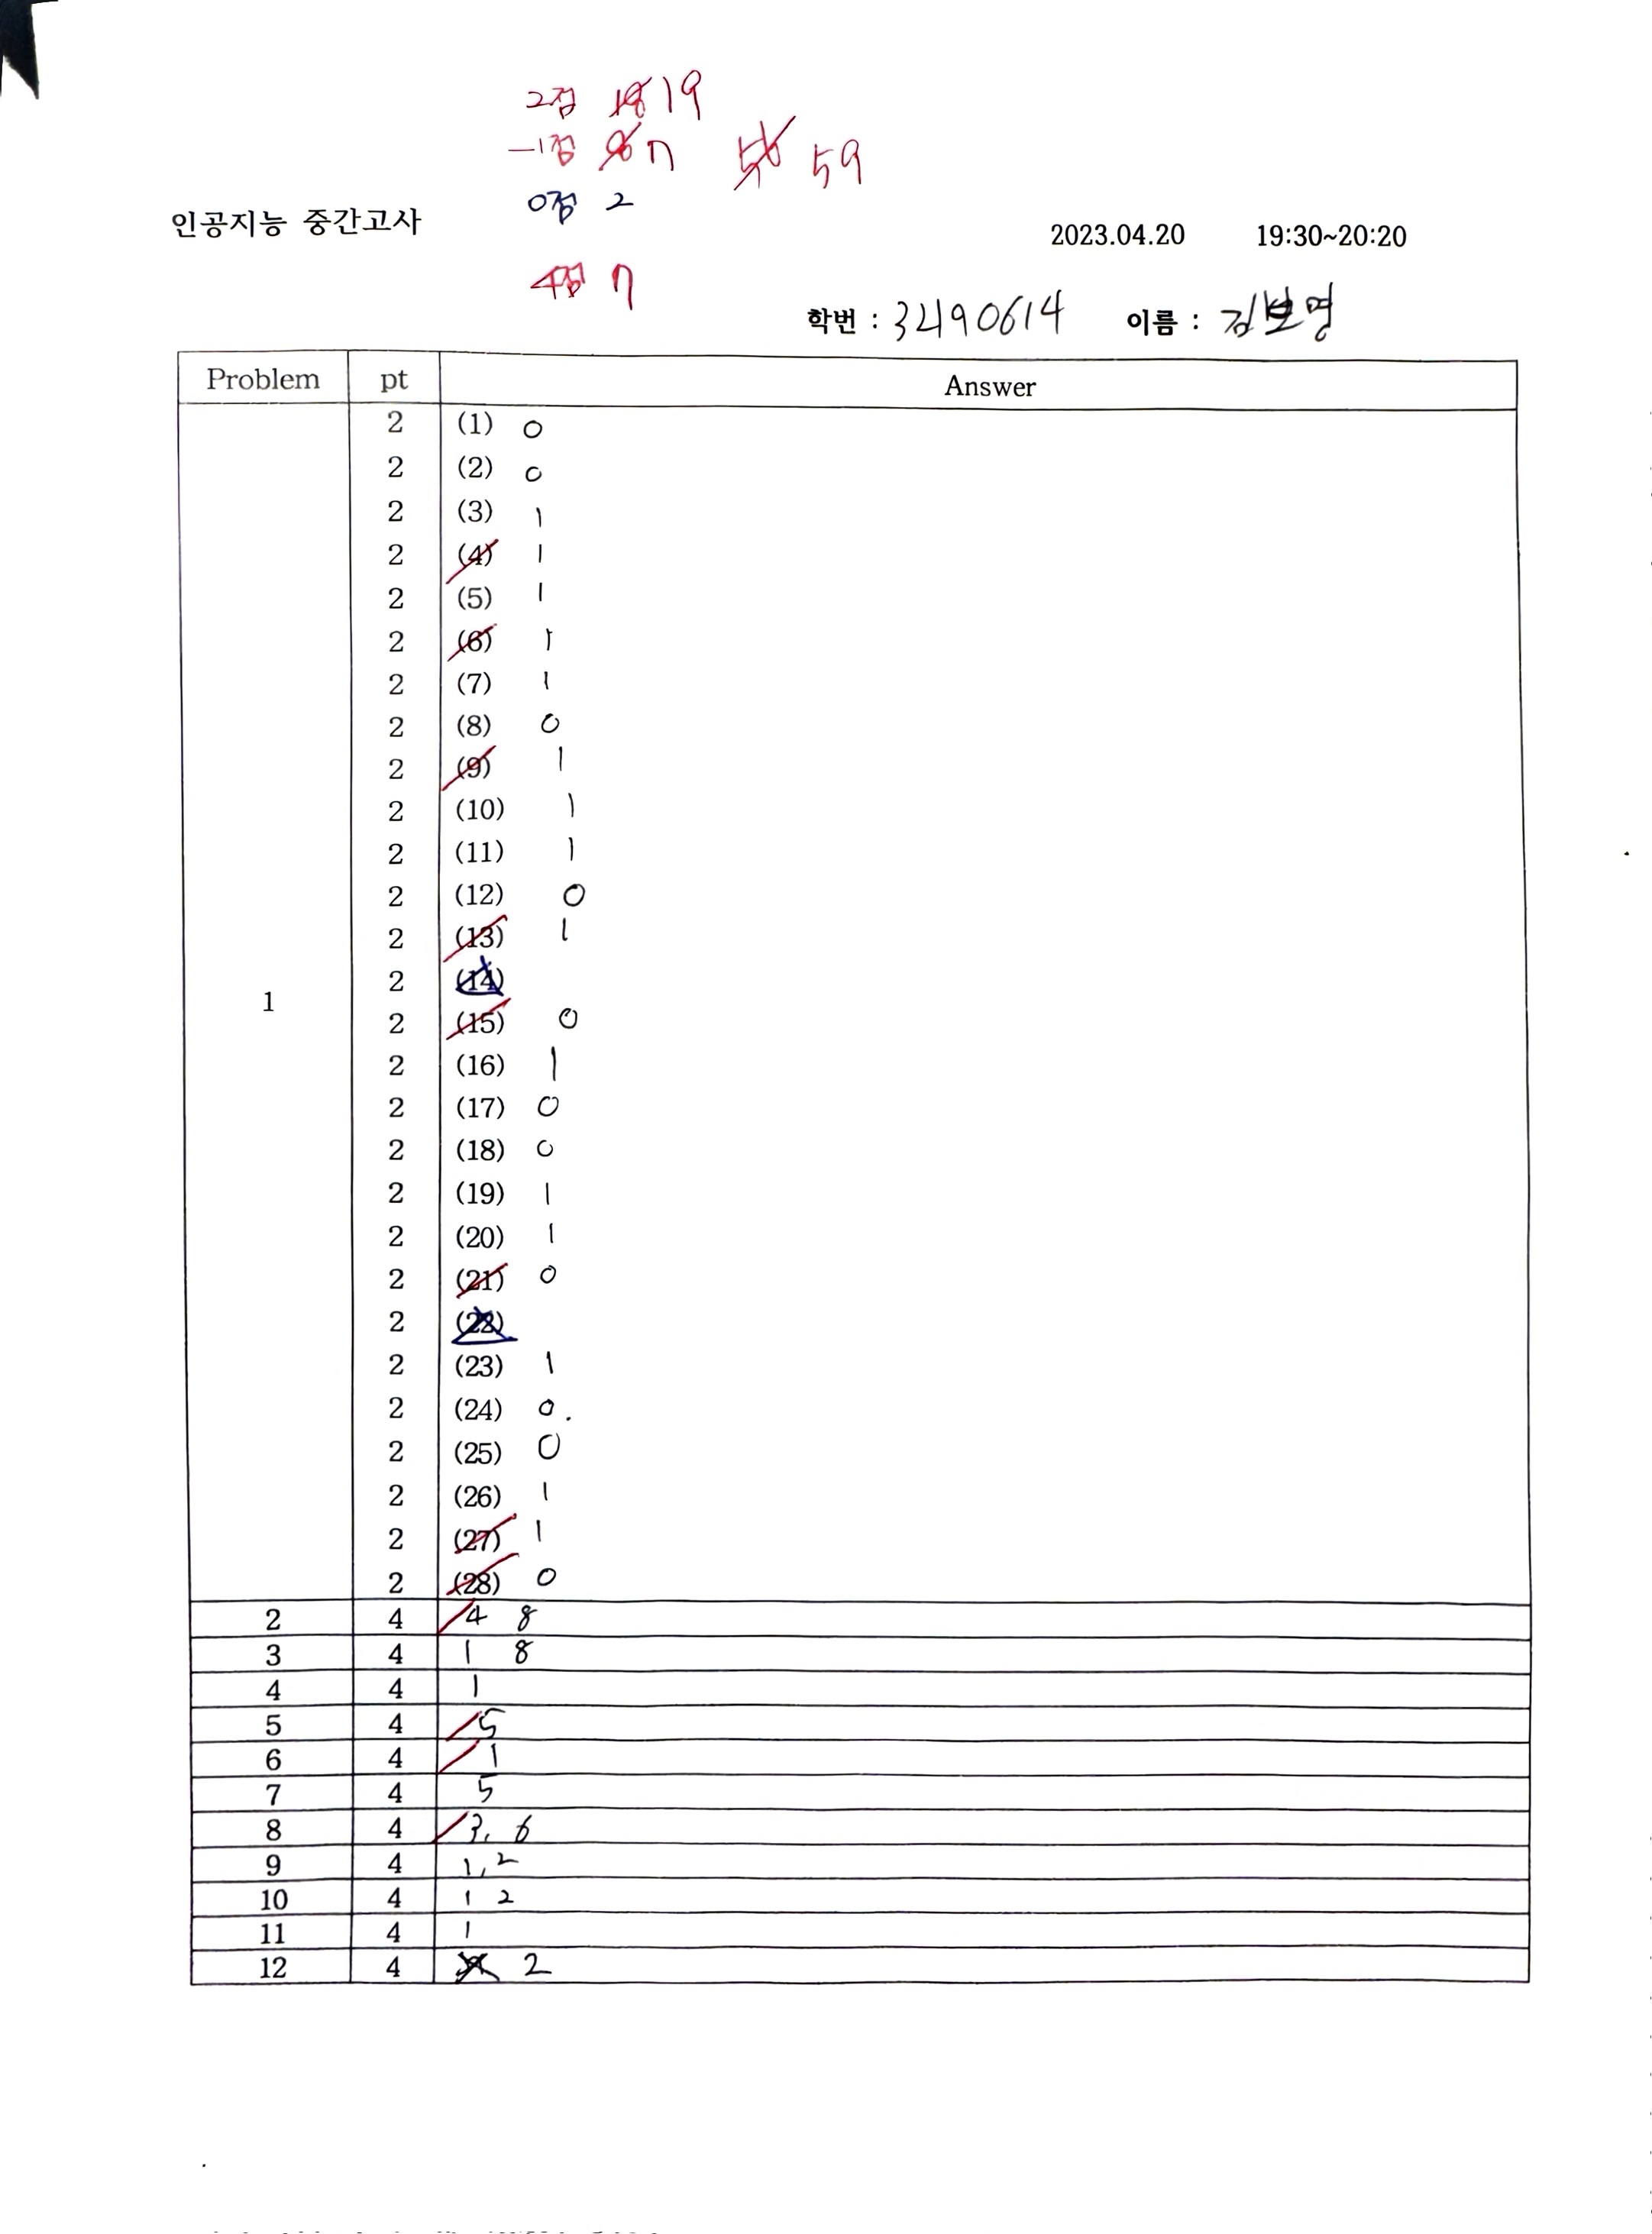 2점 18 19
-1점 8 7 56 59
0점 2
인공지능 중간고사 2023.04.20 19:30~20:20
4점 7
학번 : 32190614 이름 : 김보영
Problem pt Answer
2 (1) 0
2 (2) 0
2 (3) 1
2 (4) 1
2 (5) 1
2 (6) 1
2 (7) 1
2 (8) 0
2 (9) 1
2 (10) 1
2 (11) 1
2 (12) 0
2 (13) 1
2 (14)
1
2 (15) 0
2 (16) 1
2 (17) 0
2 (18) 0
2 (19) 1
2 (20) 1
2 (21) 0
2 (22)
2 (23) 1
2 (24) 0.
2 (25) 0
2 (26) 1
2 (27) 1
2 (28) 0
2 4 4 8
3 4 1 8
4 4 1
5 4 5
6 4 1
7 4 5
8 4 3, 6
9 4 1, 2
10 4 1 2
11 4 1
12 4 2